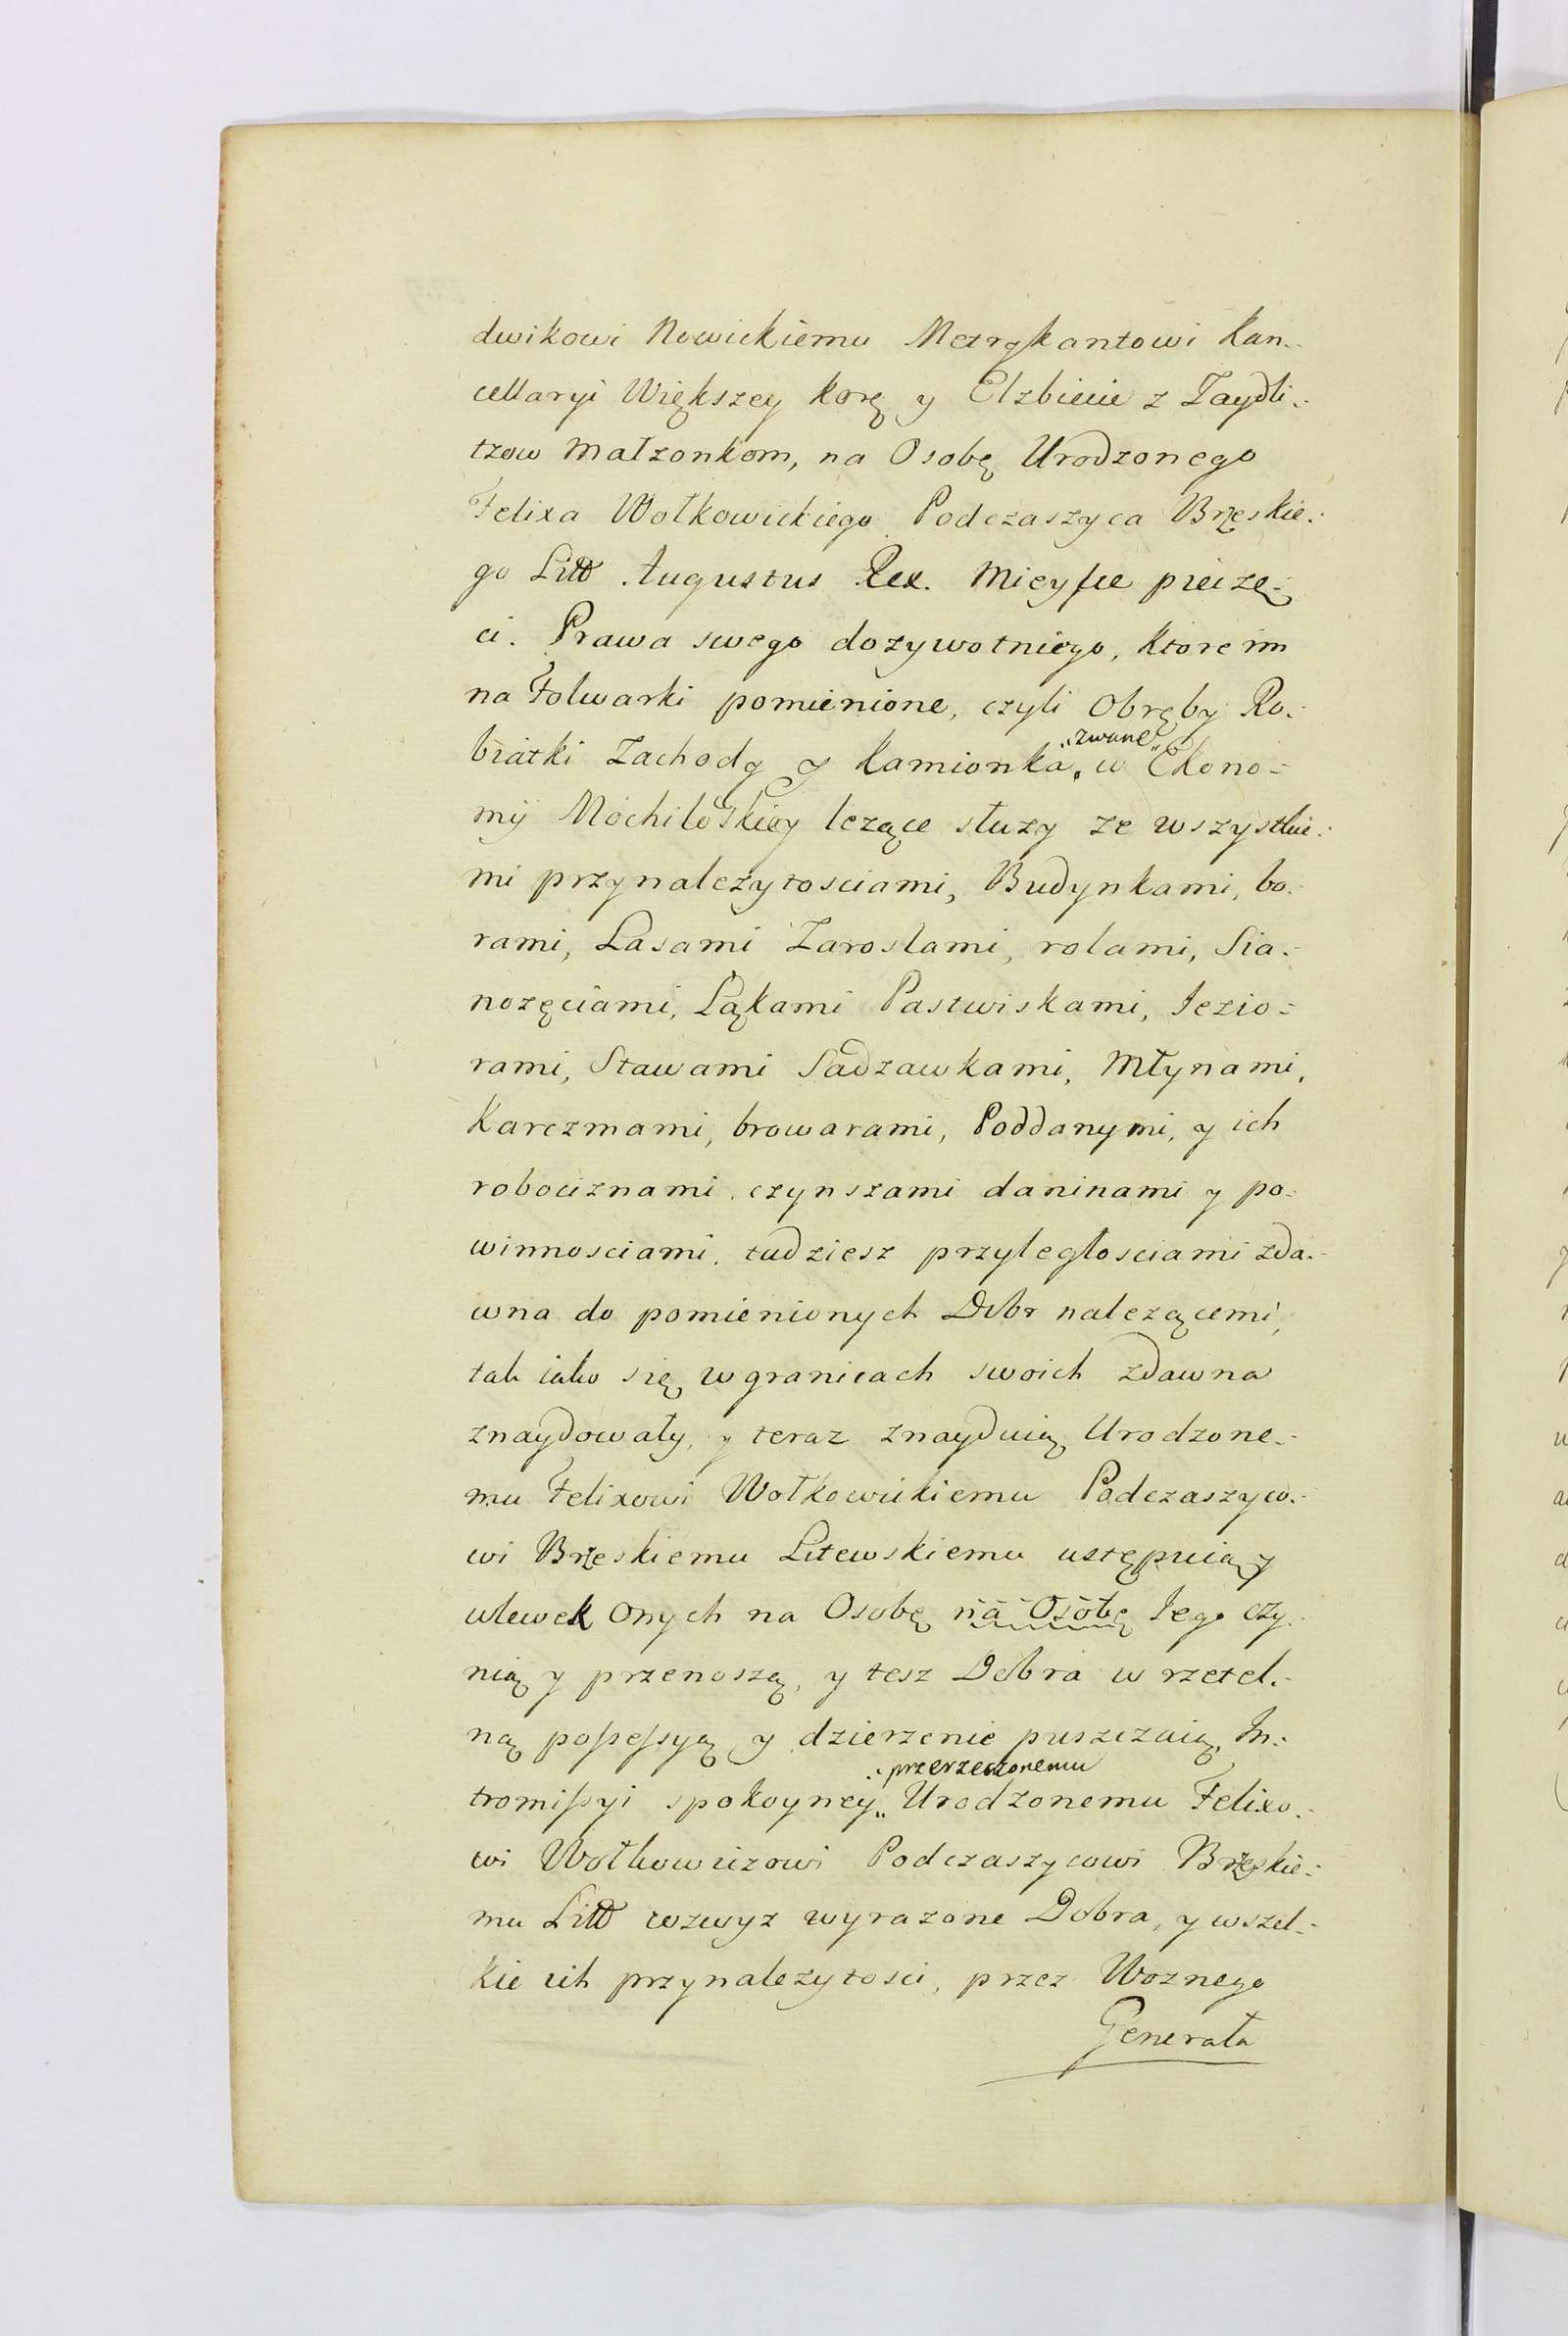 dwikowi Nowickiemu Metrykantowi Kan-
cellaryi Większey Korq y Elzbiecie z Zaydli-
tzow Małzonkom, na Osobę Urodzonego
Felixa Wołkowickiego Podczaszyca Brzeskie-
go Litt Augustus Rex. Mieysce pieczę-
ci. Prawa swego dozywotniego, ktore im
na Folwarki pomienione, czyli Obręby Ro-
biatki Zachody y Kamionka „zwane„ w Ekono-
mij Mochilowskiey lezące słuzy ze wszystkie-
mi przynalezytosciami, Budynkami, bo-
rami, Lasami Zaroslami, rolami, Sia-
nozęciami, Ląkami Pastwiskami, Iezio-
rami, Stawami Sadzawkami, Młynami,
Karczmami, browarami, Poddanymi, y ich
robociznami, czynszami daninami y po-
winnosciami, tudziesz przyległosciami zda-
wna do pomienionych Dobr nalezącemi,
tak iako się w granicach swoich zdawna
znaydowały, y teraz znayduią Urodzone-
mu Felixowi Wołkowickiemu Podczaszyco-
wi Brzeskiemu Litewskiemu ustępuią y
wlewek Onych na Osobę na Osobę Iego czy-
nią y przenoszą, y tesz Dobra w rzetel-
ną possessyą y dzierzenie puszczaią, In-
tromissyi spokoyney „przerzeczonemu Urodzonemu Felixo-
wi Wołkowiczowi Podczaszycowi Brzeskie-
mu Litt wzwyz wyrazone Dobra, y wszel-
kie ich przynalezytosci, przez Woznego
Generała